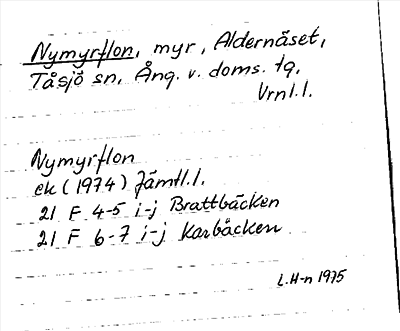 Nymyrflon, myr, Aldernäset,
Tåsjö sn, Ång. v. doms. tg,
Vrnl.l.
Nymyrflon
ek (1974) Jämtl.l.
21 F 4-5 i-j Brattbäcken
21 F 6-7 i-j Karbäcken
L.H-n 1975